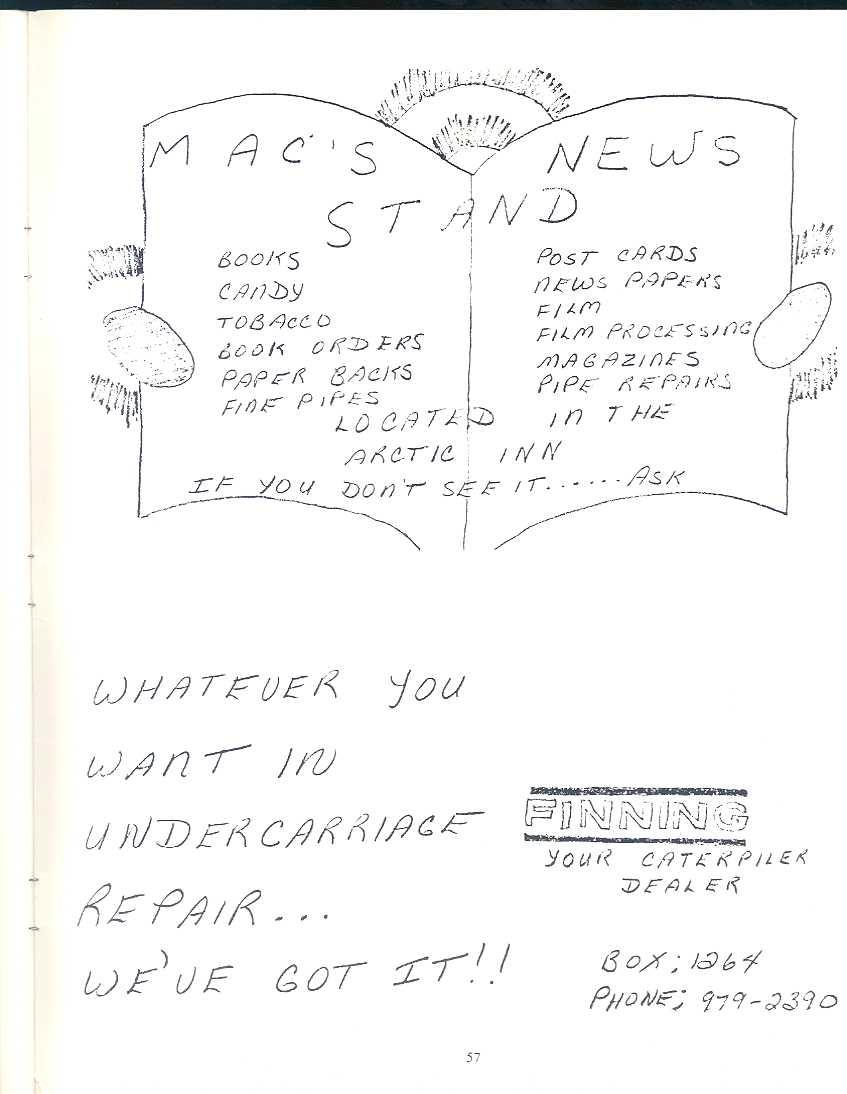 MAC'S NEWS
STAND
BOOKS
CANDY
TOBACCO
BOOK ORDERS
PAPER BACKS
FINE PIPES
POST CARDS
NEWS PAPERS
FILM
FILM PROCESSING
MAGAZINES
PIPE REPAIRS
LOCATED IN THE
ARCTIC INN
IF YOU DON'T SEE IT......ASK
WHATEVER YOU
WANT IN
UNDERCARRIAGE
REPAIR...
WE'VE GOT IT!!
FINNING
YOUR CATERPILER
DEALER
BOX; 1264
PHONE; 979-2390
57